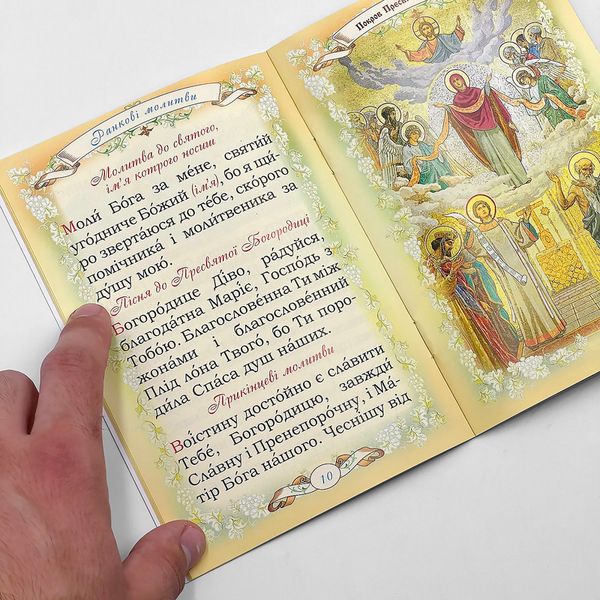 Ранкові молитви
Молитва до святого,
ім'я котрого носиш
Моли́ Бо́га за ме́не, святи́й
уго́дниче Бо́жий (ім'я́), бо я щи-
ро зверта́юся до те́бе, ско́рого
помічника́ і моли́твеника за
ду́шу мою́.
Пісня до Пресвятої Богородиці
Богоро́дице Ді́во, ра́дуйся,
благода́тна Марі́є, Госпо́дь з
Тобо́ю. Благослове́нна Ти між
жона́ми і благослове́нний
Плід ло́на Твого́, бо Ти поро-
ди́ла Спа́са душ на́ших.
Прикінцеві молитви
Вої́стину досто́йно є сла́вити
Тебе́, Богоро́дицю, завжди́
Сла́вну і Пренепоро́чну, і Ма́-
тір Бо́га на́шого. Чесні́шу від
10
Покров